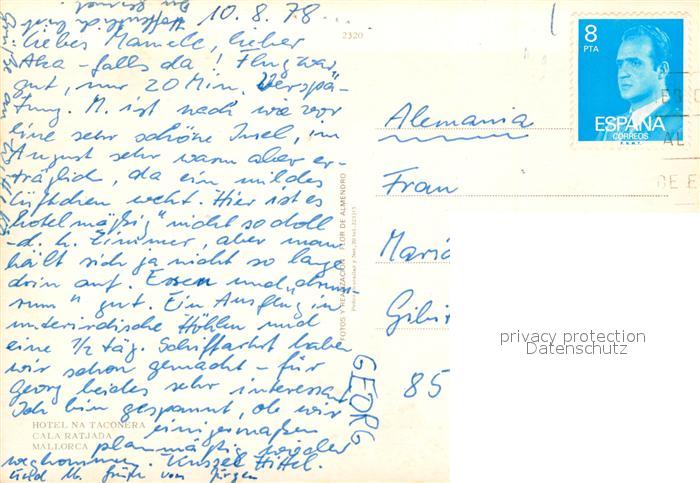 10.8.78
Liebes Mamele, lieber
Aka - falls da! Flug war
gut, nur 20 Min. "Verspä-
tung. M. ist nach wie vor
eine sehr schöne Insel, im
August sehr warm aber er-
träglich, da ein mildes
Lüftchen weht. Hier ist es
"hotelmäßig" nicht so doll
d. h. Zimmer, aber man
hält sich ja nicht so lange
drin auf. Essen und "drum-
rum" gut. Ein Ausflug in
unterirdische Höhlen und
eine 1/2 täg. Schiffahrt habe
wir schon gemacht - für
Georg beides sehr interessant
Ich bin gespannt, ob wir
einigermaßen
planmäßig wieder
wegkommen.
GEORG
HOTEL NA TACONERA
CALA RATJADA
MALLORCA
2320
FOTOS Y REALIZACION FLOR DE ALMENDRO
8
PTA
ESPAÑA
CORREOS
F.N.M.T.
Alemania
Frau
Maria
85
privacy protection
Datenschutz